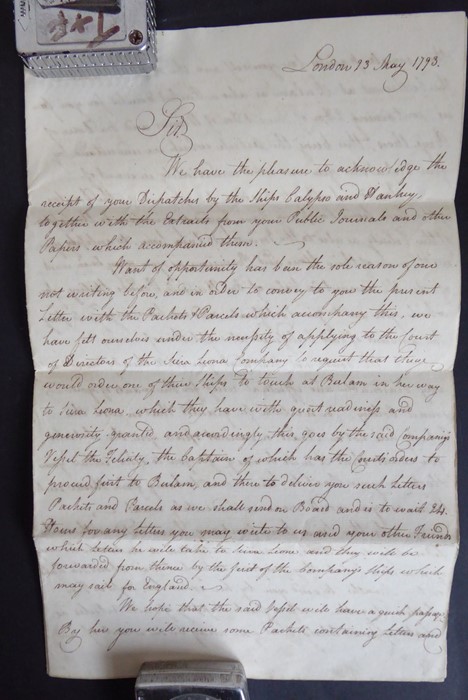 London 23 May 1793.
Sir
We have the pleasure to acknowledge the
receipt of your Dispatches by the Ships Calypso and Hankey,
together with the Extracts from your Public Journals and other
Papers which accompanied them.
Want of opportunity has been the sole reason of our
not writing before, and in order to convey to you the present
Letter with the Packets & Parcels which accompany this, we
have felt ourselves under the necessity of applying to the Court
of Directors of the Siera Leona Company to request that they
would order one of their Ships to touch at Bulam in her way
to Siera Leona, which they have with great readiness and
generosity granted, and accordingly this goes by the said Company's
Vessel the Felicity, the Captain of which has the Courts orders to
proceed first to Bulam, and there to deliver you such Letters
Packets and Parcels as we shall send on Board and is to wait 24
Hours for any letters you may write to us and your other Friends
which letters he will take to Siera Leona and they will be
forwarded from thence by the first of the Company's Ships which
may sail for England.
We hope that the said Vessel will have a quick passage
By her you will receive some Packets containing Letters and